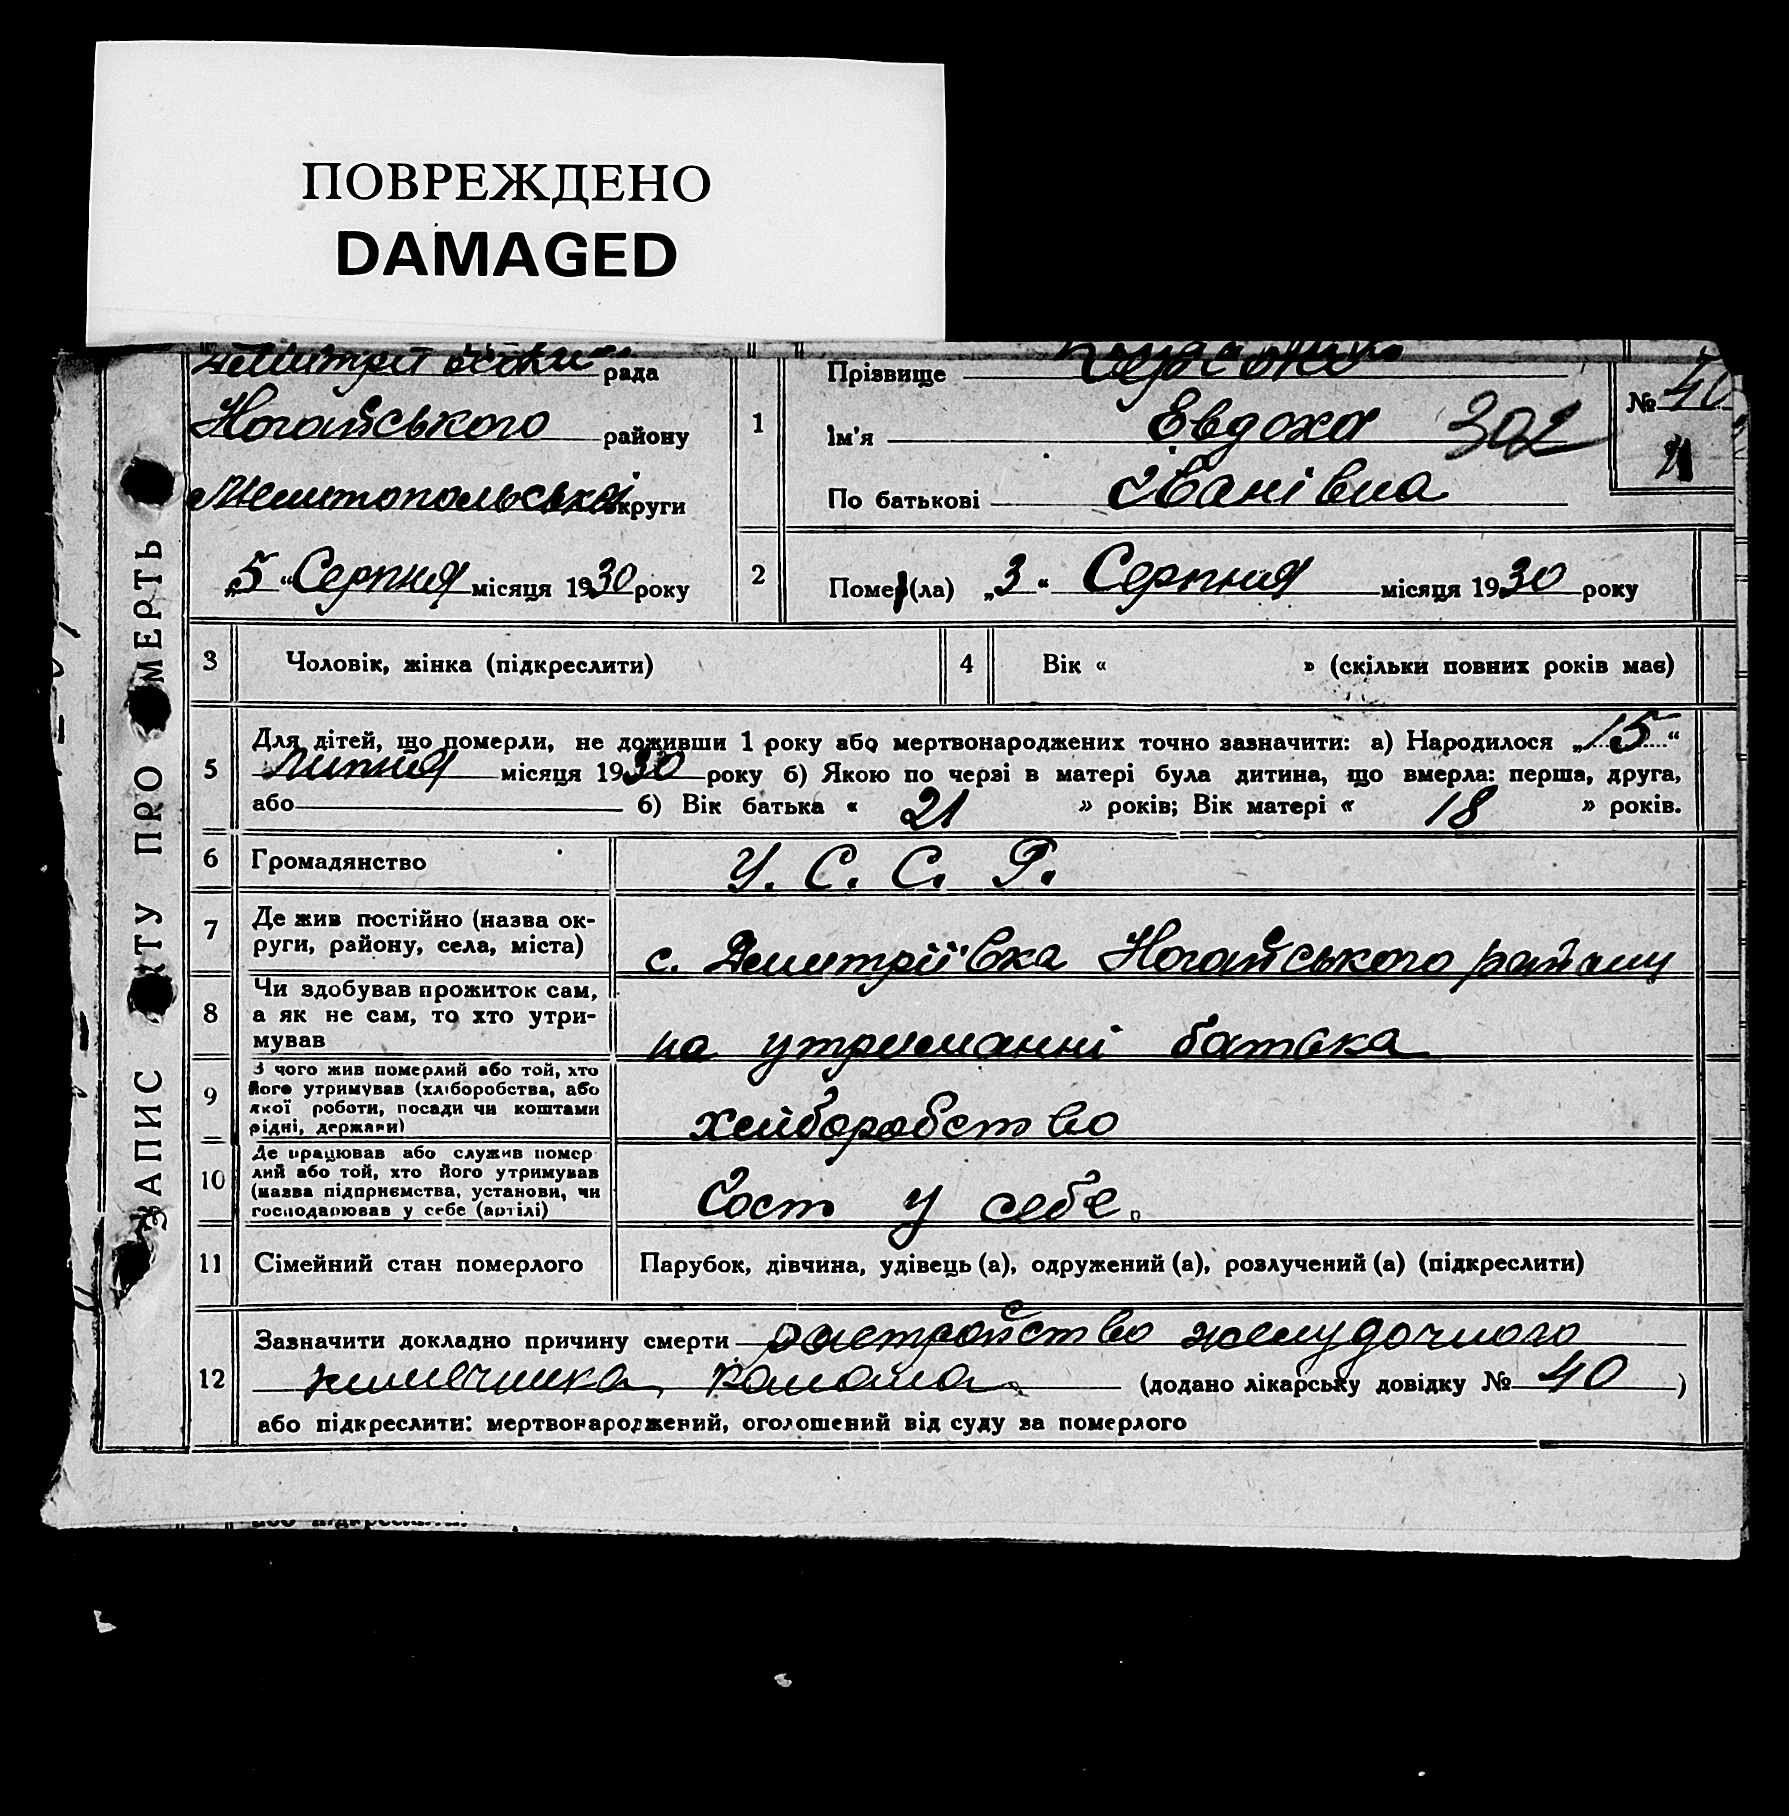 ПОВРЕЖДЕНО
DAMAGED
ЗАПИС АКТУ ПРО СМЕРТЬ
рада
Ногайського району
Мелитопольської округи
„5“ Серпня місяця 1930 року
1
Прізвище
Ім'я Евдоха 302
По батькові Іванівна
№ 40
2
Помер(ла) „3“ Серпня місяця 1930 року
3 Чоловік, жінка (підкреслити)
4 Вік « » (скільки повних років має)
5 Для дітей, що померли, не доживши 1 року або мертвонароджених точно зазначити: а) Народилося „15“
Липня місяця 1930 року б) Якою по черзі в матері була дитина, що вмерла: перша, друга,
або 6) Вік батька « 21 » років; Вік матері « 18 » років.
6 Громадянство У. С. С. Р.
7 Де жив постійно (назва ок-
руги, району, села, міста) с. Дмитріївка Ногайського району
8 Чи здобував прожиток сам,
а як не сам, то хто утри-
мував на утриманні батька
9 З чого жив померлий або той, хто
його утримував (хліборобства, або
якої роботи, посади чи коштами
рідні, держави) хліборобство
10 Де працював або служив помер
лий або той, хто його утримував
(назва підприємства, установи, чи
господарював у себе (артілі) Госп у себе.
11 Сімейний стан померлого Парубок, дівчина, удівець (а), одружений (а), розлучений (а) (підкреслити)
12 Зазначити докладно причину смерти растройство желудочного
кишечника канала (додано лікарську довідку № 40)
або підкреслити: мертвонароджений, оголошений від суду за померлого